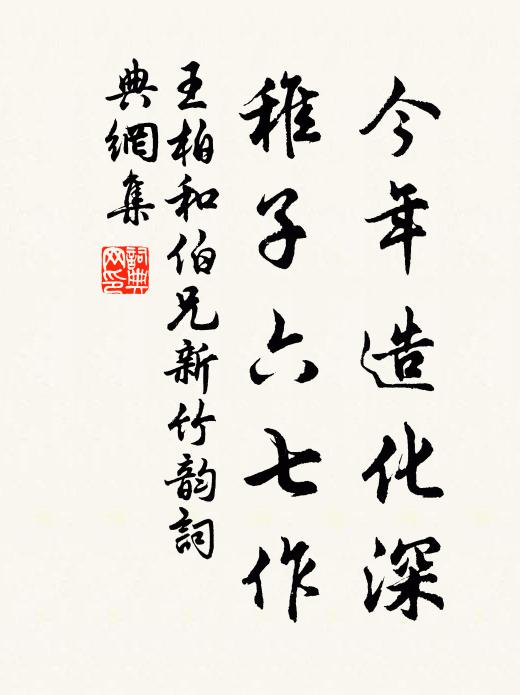 今年造化深
稚子六七作
王柏和伯兄新竹韵詞
典網集
詞典网印